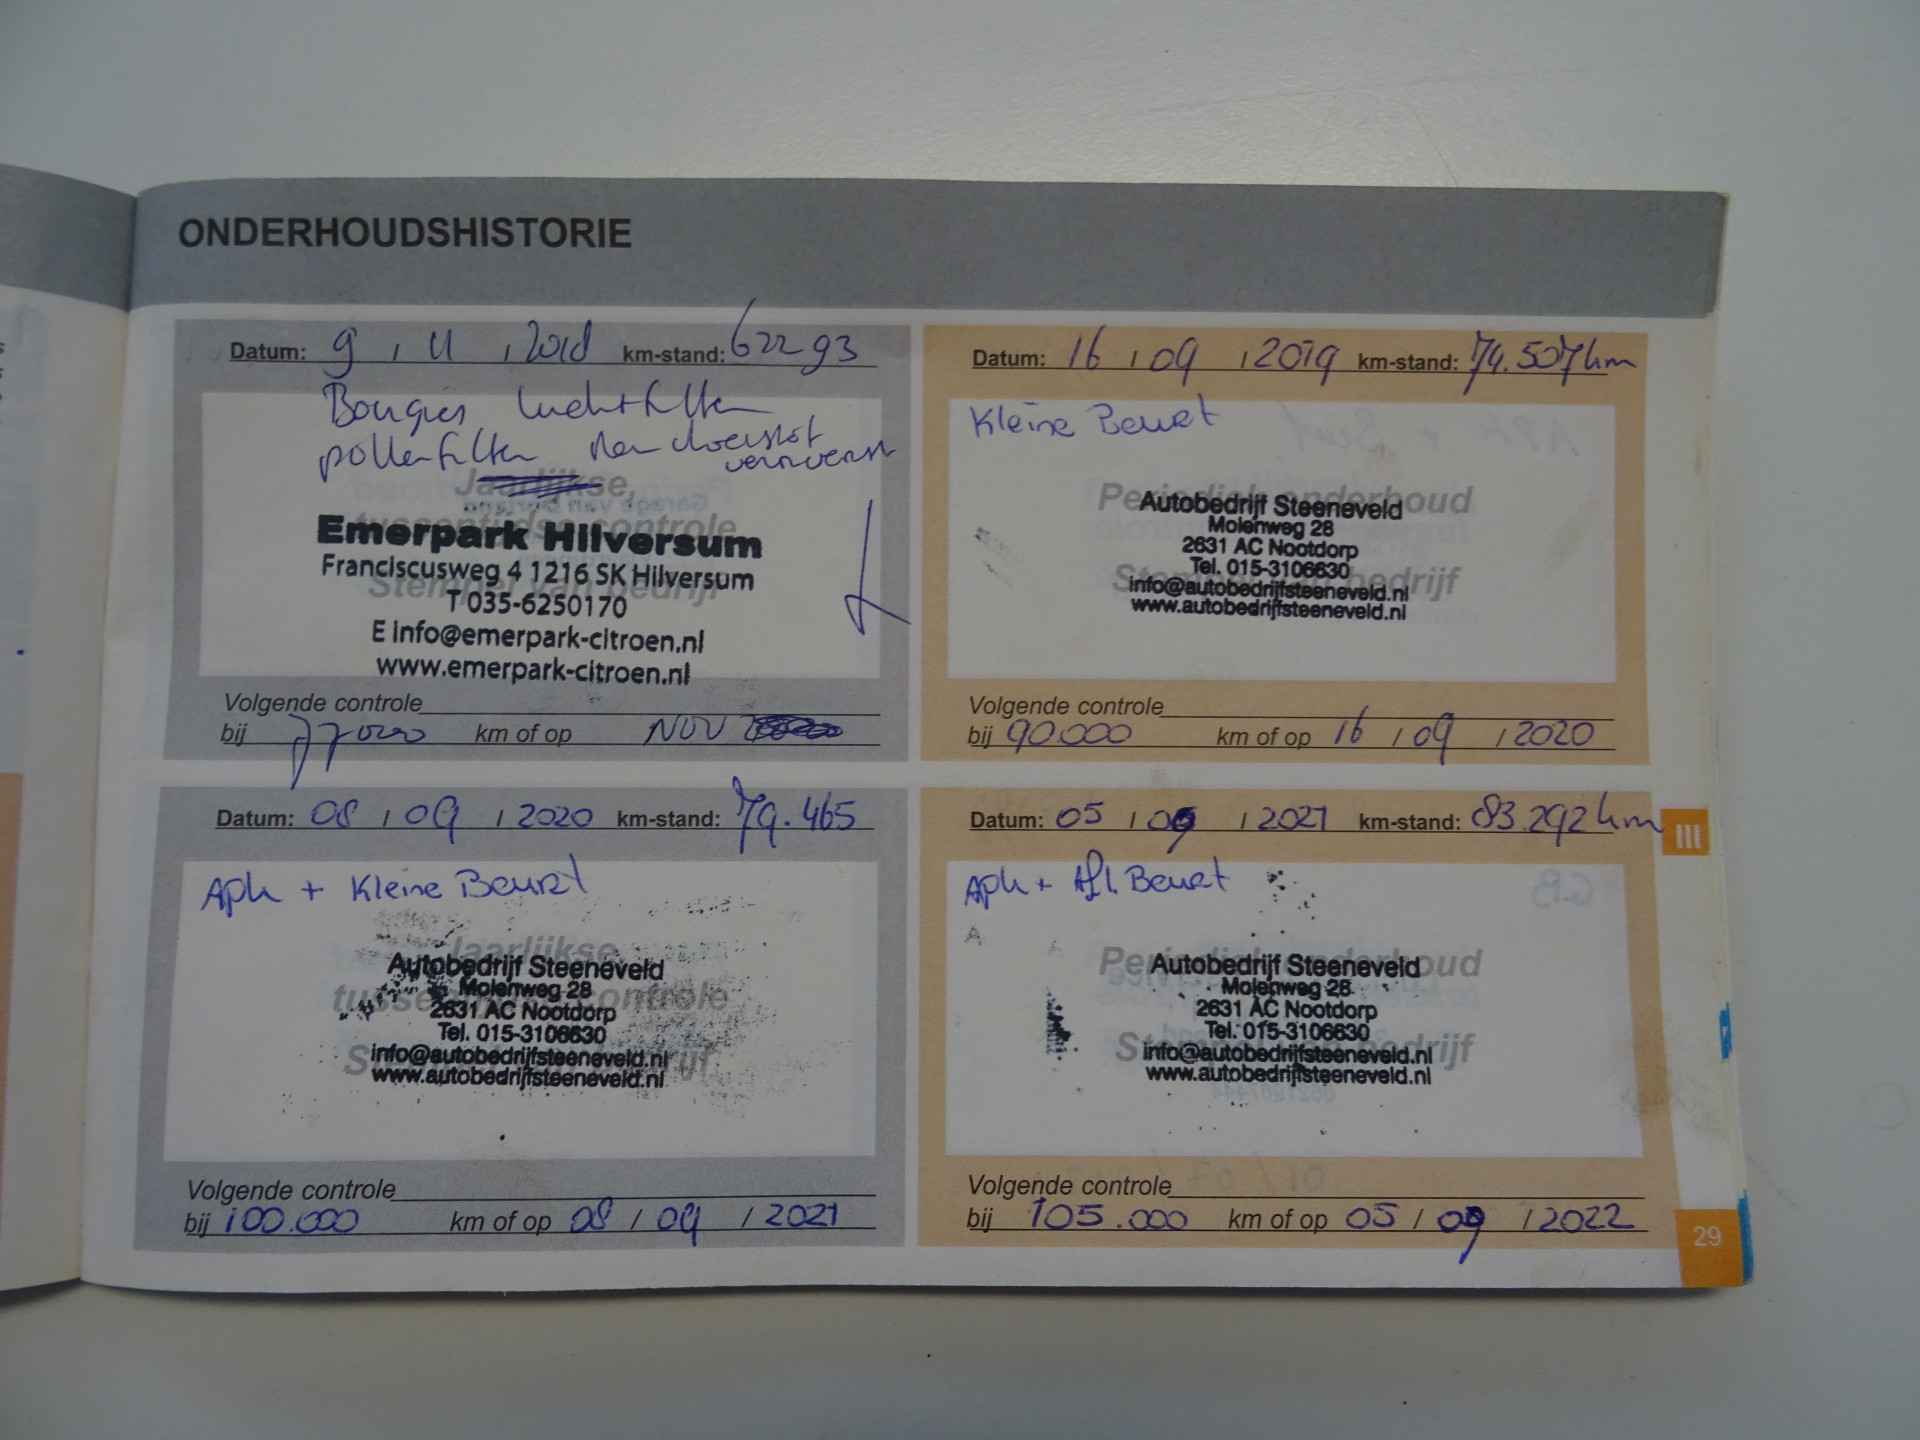 ONDERHOUDSHISTORIE
Datum: 9 / 11 / 2018 km-stand: 62293
Bougies luchtfilter
pollenfilter
Jaarlijkse,
tussentijdse controle
Stempel van bedrijf
Emerpark Hilversum
Franciscusweg 4 1216 SK Hilversum
T 035-6250170
E info@emerpark-citroen.nl
www.emerpark-citroen.nl
Volgende controle
bij 77000 km of op NOV
Datum: 16 / 09 / 2019 km-stand: 74.507 km
Kleine Beurt
Periodiek onderhoud
Stempel van bedrijf
Autobedrijf Steeneveld
Molenweg 28
2631 AC Nootdorp
Tel. 015-3106630
info@autobedrijfsteeneveld.nl
www.autobedrijfsteeneveld.nl
Volgende controle
bij 90.000 km of op 16 / 09 / 2020
Datum: 08 / 09 / 2020 km-stand: 79.465
APK + Kleine Beurt
Jaarlijkse,
tussentijdse controle
Stempel van bedrijf
Autobedrijf Steeneveld
Molenweg 28
2631 AC Nootdorp
Tel. 015-3106630
info@autobedrijfsteeneveld.nl
www.autobedrijfsteeneveld.nl
Volgende controle
bij 100.000 km of op 08 / 09 / 2021
Datum: 05 / 09 / 2021 km-stand: 83.292 km
APK + Beurt
Periodiek onderhoud
Stempel van bedrijf
Autobedrijf Steeneveld
Molenweg 28
2631 AC Nootdorp
Tel. 015-3106630
info@autobedrijfsteeneveld.nl
www.autobedrijfsteeneveld.nl
Volgende controle
bij 105.000 km of op 05 / 09 / 2022
III
29